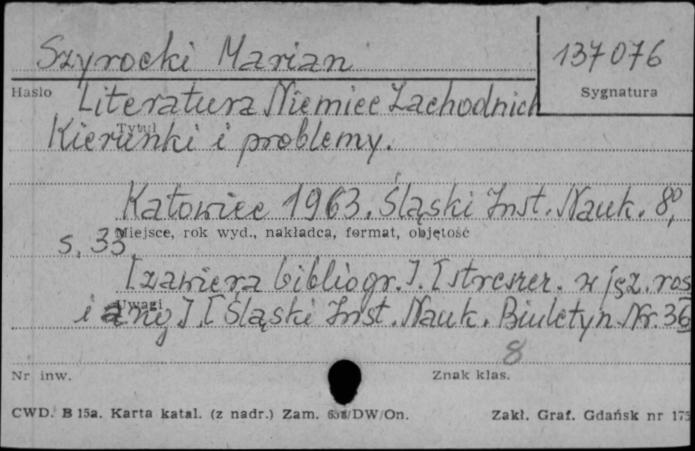 Szyrocki Marian
137076
Hasło
Sygnatura
Literatura Niemiec Zachodnich
Tytuł
Kierunki i problemy.
Katowice 1963. Śląski Inst. Nauk. 8°,
Miejsce, rok wyd., nakładca, format, objętość
s. 33
[zawiera bibliogr.]. [streszcz. w jęz. ros
Uwagi
i ang]. [Śląski Inst. Nauk. Biuletyn Nr. 36
8
Nr inw.
Znak klas.
CWD. B 15a. Karta katal. (z nadr.) Zam. /DW/On.
Zakł. Graf. Gdańsk nr 175